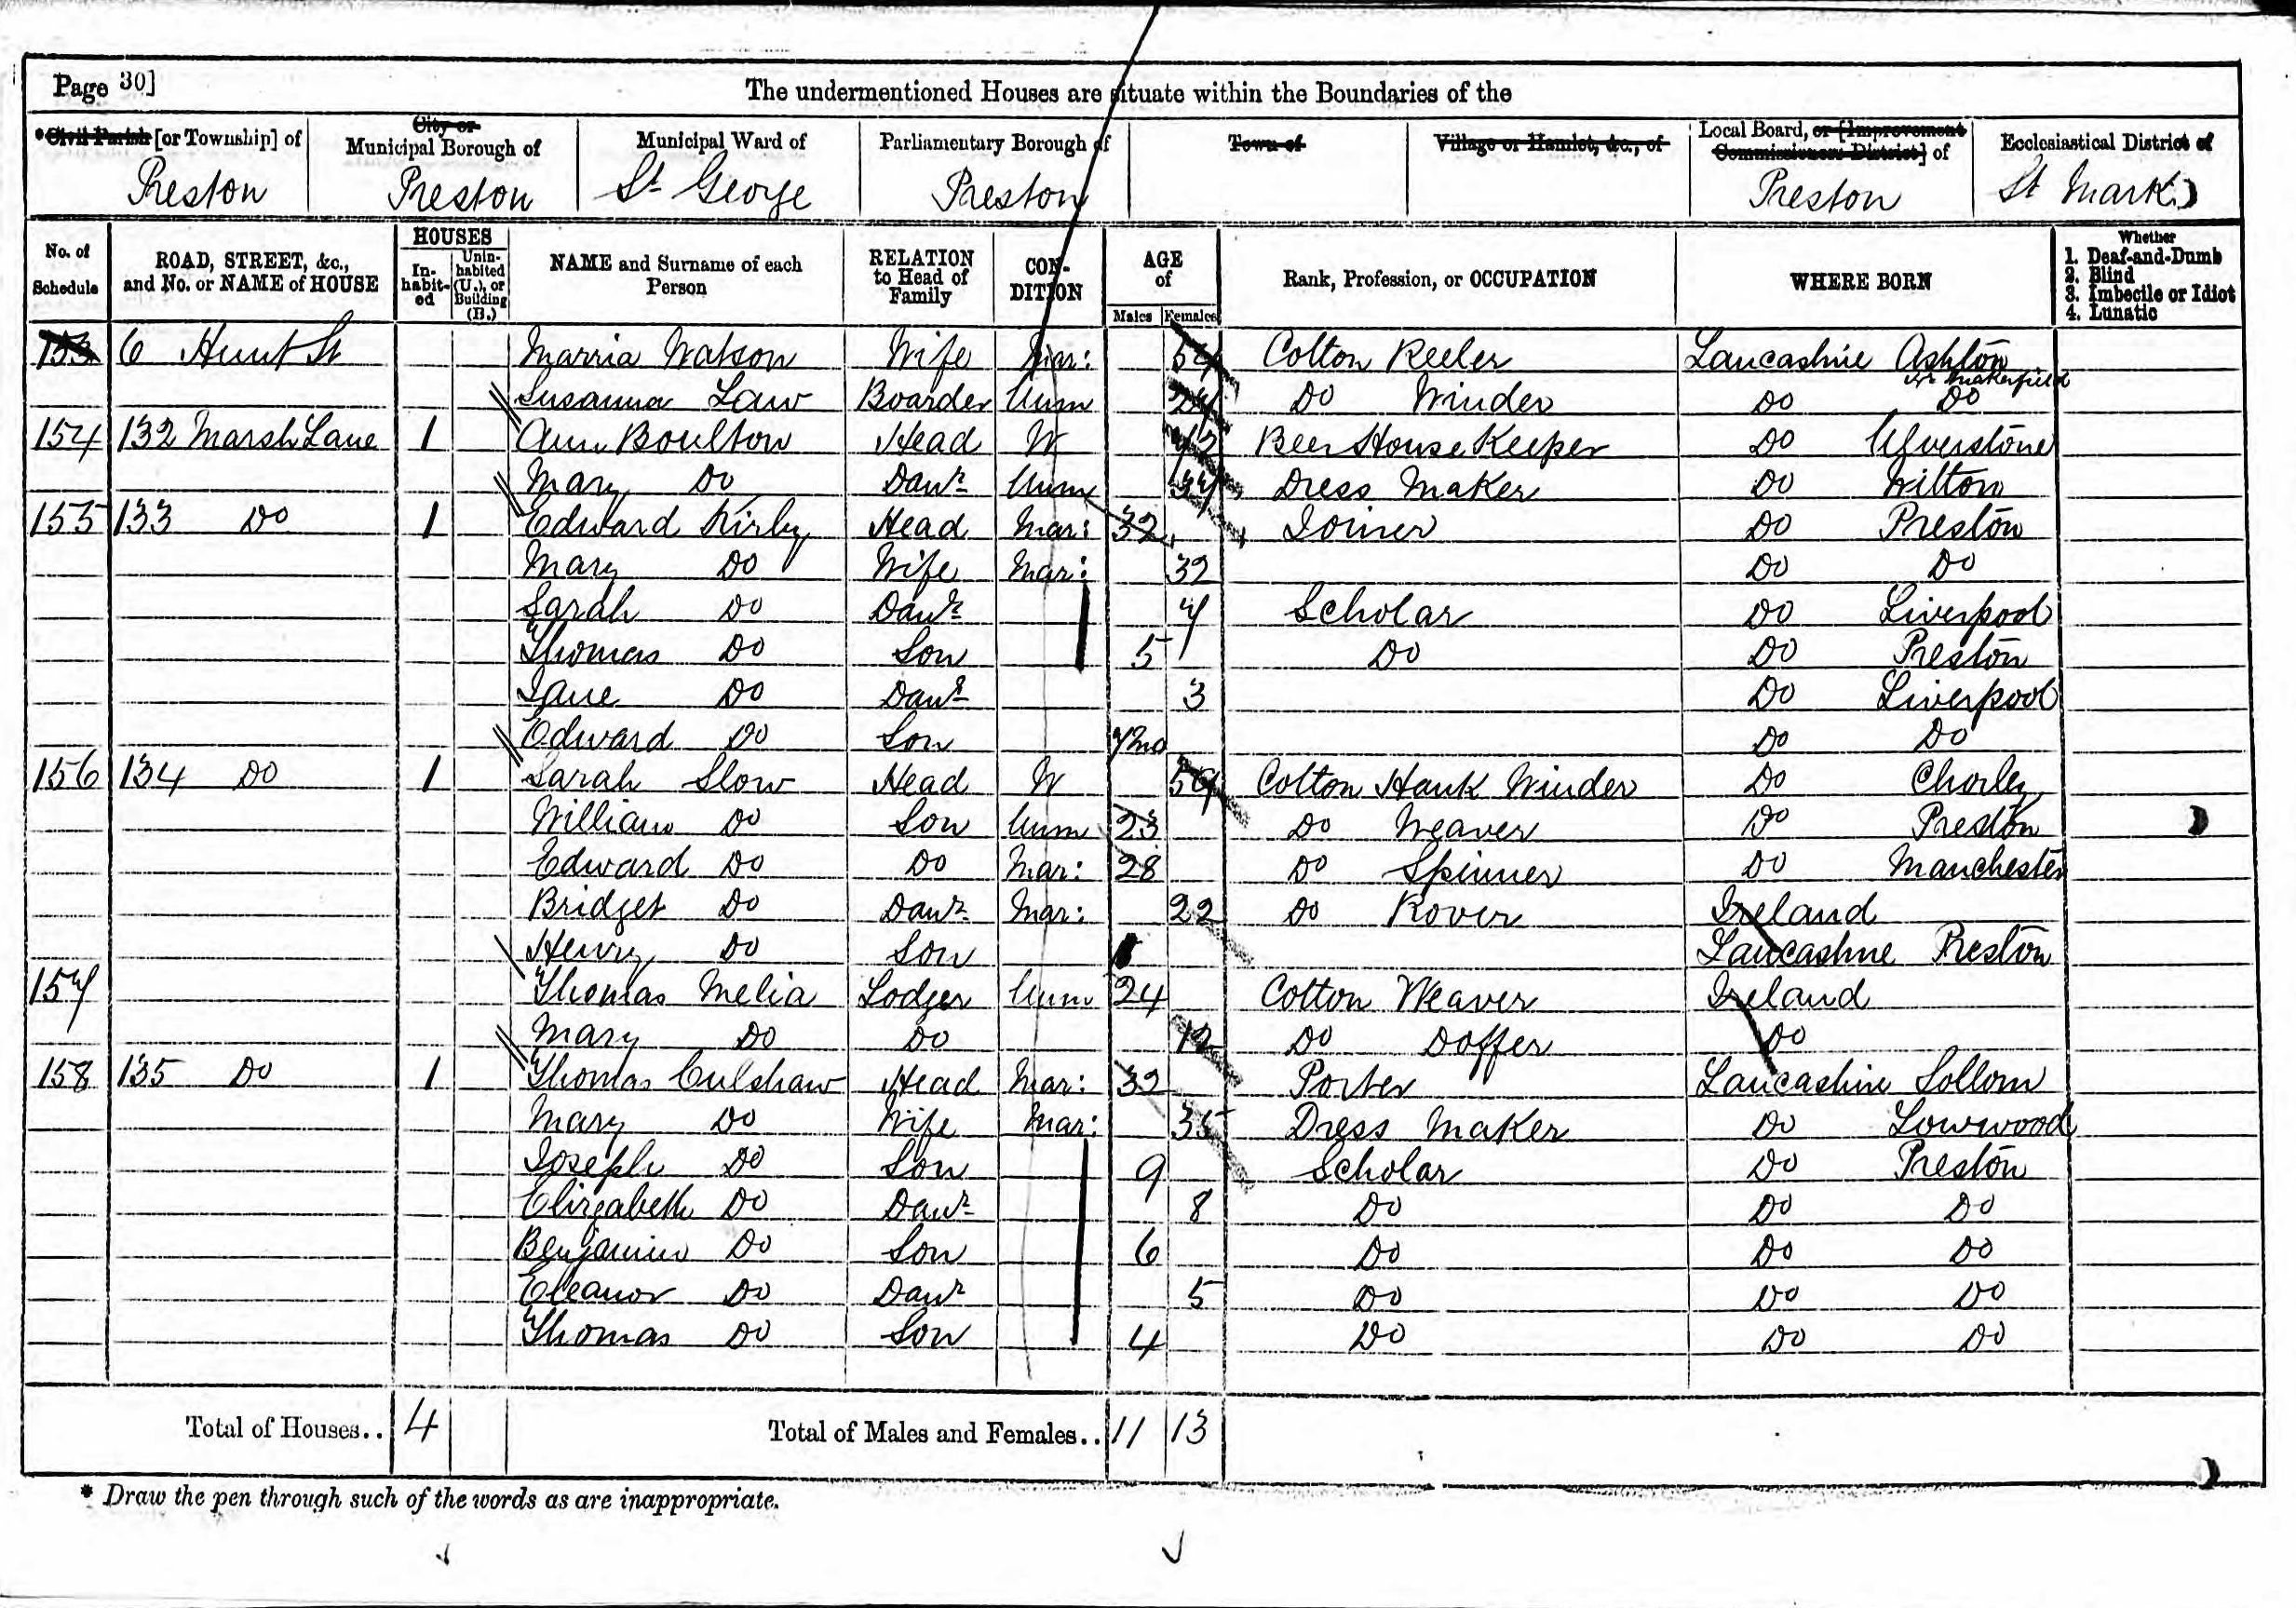 Page 30]
The undermentioned Houses are situate within the Boundaries of the
*Civil Parish [or Township] of Preston
City or Municipal Borough of Preston
Municipal Ward of St. George
Parliamentary Borough of Preston
Town of
Village or Hamlet, &c., of
Local Board, or [Improvement Commissioners District] of Preston
Ecclesiastical District of St Mark
No. of Schedule
ROAD, STREET, &c., and No. or NAME of HOUSE
HOUSES
In-habit-ed
Unin-habited (U.), or Building (B.)
NAME and Surname of each Person
RELATION to Head of Family
CON-DITION
AGE of
Males Females
Rank, Profession, or OCCUPATION
WHERE BORN
Whether
1. Deaf-and-Dumb
2. Blind
3. Imbecile or Idiot
4. Lunatic
153 6 Hunt St Marria Watson Wife Mar: Cotton Reeler Lancashire Ashton in Makerfield
Susanna Law Boarder Unm 24 Do Winder Do Do
154 132 Marsh Lane 1 Ann Boulton Head W Beer House Keeper Do Ulverstone
Mary Do Daur Unm Dress Maker Do Wilton
155 133 Do 1 Edward Kirby Head Mar: 32 Joiner Do Preston
Mary Do Wife Mar: 32 Do Do
Sarah Do Daur 7 Scholar Do Liverpool
Thomas Do Son 5 Do Do Preston
Jane Do Daur 3 Do Liverpool
Edward Do Son 7mo Do Do
156 134 Do 1 Sarah Slow Head W Cotton Hank Winder Do Chorley
William Do Son Unm 23 Do Weaver Do Preston
Edward Do Do Mar: 28 Do Spinner Do Manchester
Bridget Do Daur Mar: 22 Do Rover Ireland
Henry Do Son Lancashire Preston
157 Thomas Melia Lodger Unm 24 Cotton Weaver Ireland
Mary Do Do 12 Do Doffer Do
158 135 Do 1 Thomas Culshaw Head Mar: 32 Porter Lancashire Sollom
Mary Do Wife Mar: 35 Dress Maker Do Lowwood
Joseph Do Son 9 Scholar Do Preston
Elizabeth Do Daur 8 Do Do Do
Benjamin Do Son 6 Do Do Do
Eleanor Do Daur 5 Do Do Do
Thomas Do Son 4 Do Do Do
Total of Houses.. 4 Total of Males and Females.. 11 13
* Draw the pen through such of the words as are inappropriate.